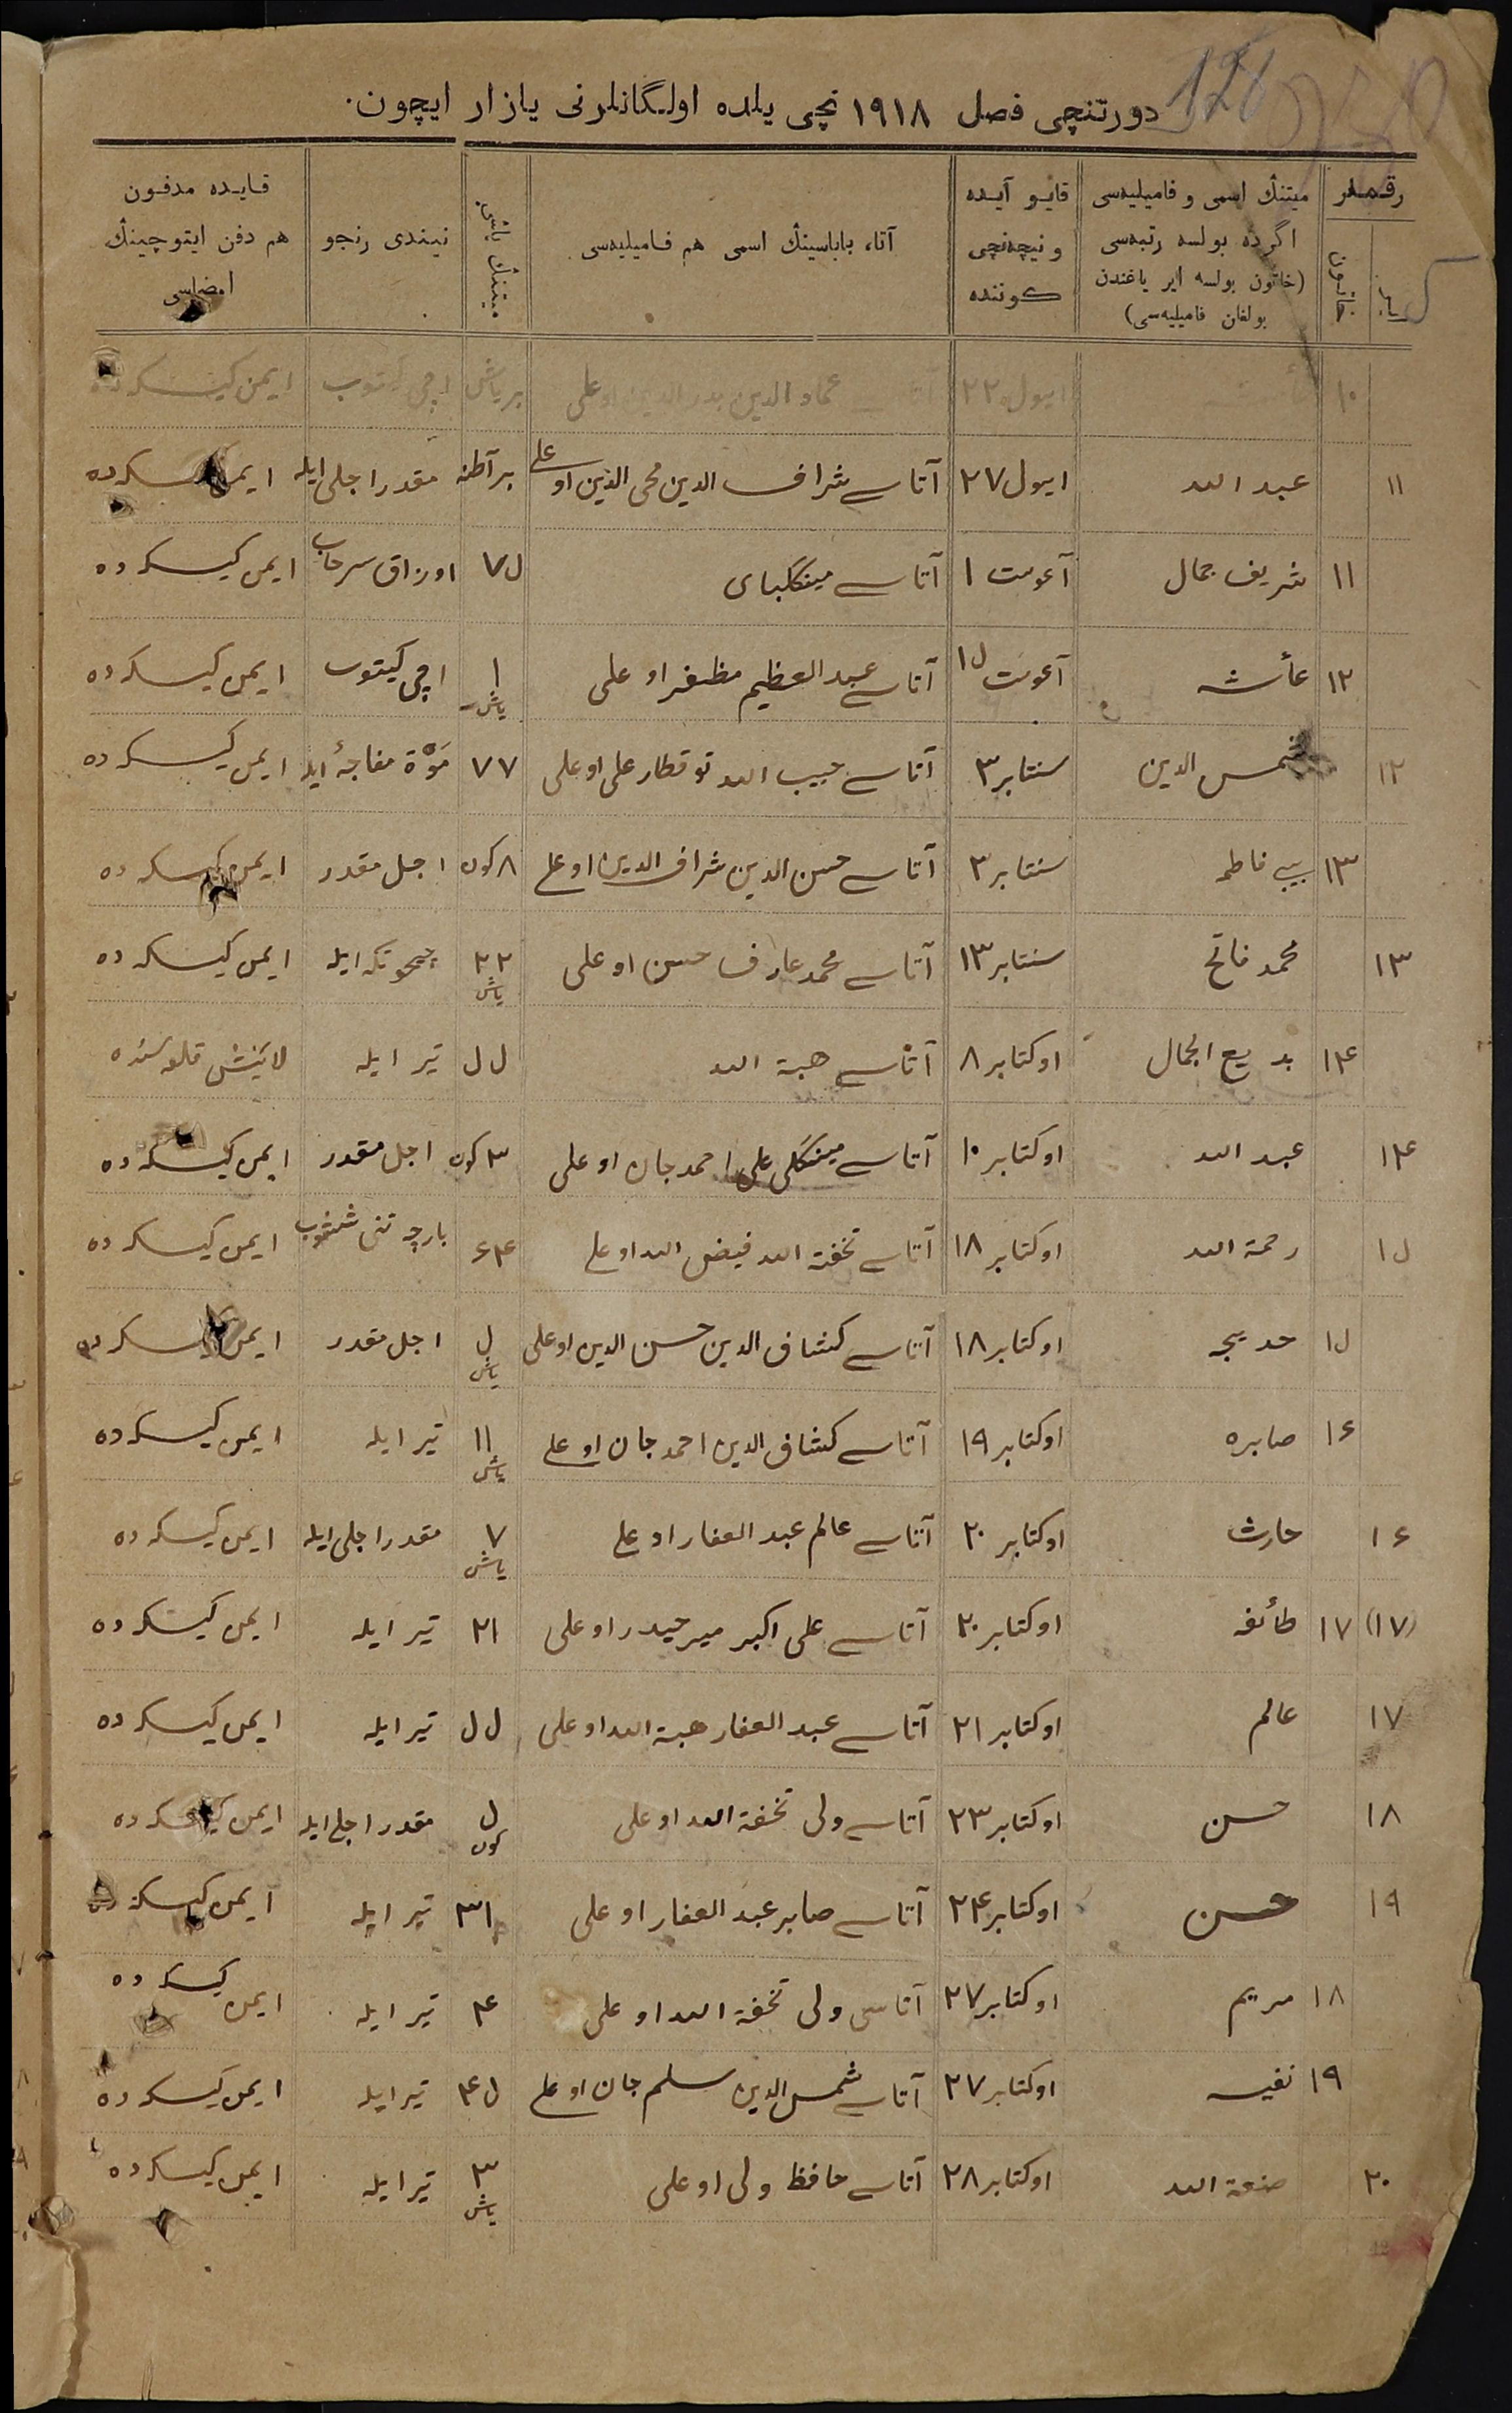 دورتنچی فصل ۱۹۱۸ نچی یلده اولگانلرنی یازار ایچون.
رقملر
ایر
خاتون
میتنڭ اسمی و فامیلیه‌سی اگرده بولسه رتبه‌سی (خاتون بولسه ایر یاغندن بولغان فامیلیه‌سی)
قایو آیده و نیچه‌نچی کوننده
آتا، باباسینڭ اسمی هم فامیلیه‌سی
میتنڭ یاشی
نیندی رنجو
قایده مدفون هم دفن ایتوچینڭ امضاسی
۱۰ ایول ۲۲ عماد الدین بدر الدین اوغلی بر یاش اچی کیتوب ایمن کیسکه ده
۱۱ عبد الله ایول ۲۷ آتاسی شراف الدین محی الدین اوغلی بر آطنه مقدر اجلی ایله ایمن کیسکه ده
۱۱ شریف جمال آغوست ۱ آتاسی مینکلبای ۷۵ اوزاق سرخاب ایمن کیسکه ده
۱۲ عأشه آغوست ۱۵ آتاسی عبد العظیم مظفر اوغلی ۱ یاش اچی کیتوب ایمن کیسکه ده
۱۲ شمس الدین سنتابر ۳ آتاسی حبیب الله توقطار علی اوغلی ۷۷ موة مفاجٔه ایله ایمن کیسکه ده
۱۳ بیبی فاطمه سنتابر ۳ آتاسی حسن الدین شراف الدین اوغلی ۸ کون اجل مقدر ایمن کیسکه ده
۱۳ محمد فاتح سنتابر ۱۳ آتاسی محمد عارف حسن اوغلی ۲۲ یاش چحوتکه ایله ایمن کیسکه ده
۱۴ بدیع الجمال اوکتابر ۸ آتاسی هبة الله ۵۵ تیر ایله
۱۴ عبد الله اوکتابر ۱۰ آتاسی مینکلی علی احمد جان اوغلی ۳ کون اجل مقدر ایمن کیسکه ده
۱۵ رحمة الله اوکتابر ۱۸ آتاسی تحفة الله فیض الله اوغلی ۶۴ بارچه تنی شیشوب ایمن کیسکه ده
۱۵ خدیجه اوکتابر ۱۸ آتاسی کشاف الدین حسن الدین اوغلی ۵ یاش اجل مقدر ایمن کیسکه ده
۱۶ صابره اوکتابر ۱۹ آتاسی کشاف الدین احمد جان اوغلی ۱۱ یاش تیر ایله ایمن کیسکه ده
۱۶ حارث اوکتابر ۲۰ آتاسی عالم عبد الغفار اوغلی ۷ یاش مقدر اجلی ایله ایمن کیسکه ده
(۱۷) ۱۷ طأئفه اوکتابر ۲۰ آتاسی علی اکبر میر حیدر اوغلی ۲۱ تیر ایله ایمن کیسکه ده
۱۷ عالم اوکتابر ۲۱ آتاسی عبد الغفار هبة الله اوغلی ۵۵ تیر ایله ایمن کیسکه ده
۱۸ حسن اوکتابر ۲۳ آتاسی ولی تحفة الله اوغلی ۵ کون مقدر اجلی ایله ایمن کیسکه ده
۱۹ حسن اوکتابر ۲۴ آتاسی صابر عبد الغفار اوغلی ۳۱ تیر ایله ایمن کیسکه ده
۱۸ مریم اوکتابر ۲۷ آتاسی ولی تحفة الله اوغلی ۴ تیر ایله ایمن کیسکه ده
۱۹ نفیسه اوکتابر ۲۷ آتاسی شمس الدین سلیم جان اوغلی ۴۵ تیر ایله ایمن کیسکه ده
۲۰ صنعة الله اوکتابر ۲۸ آتاسی حافظ ولی اوغلی ۳ یاش تیر ایله ایمن کیسکه ده